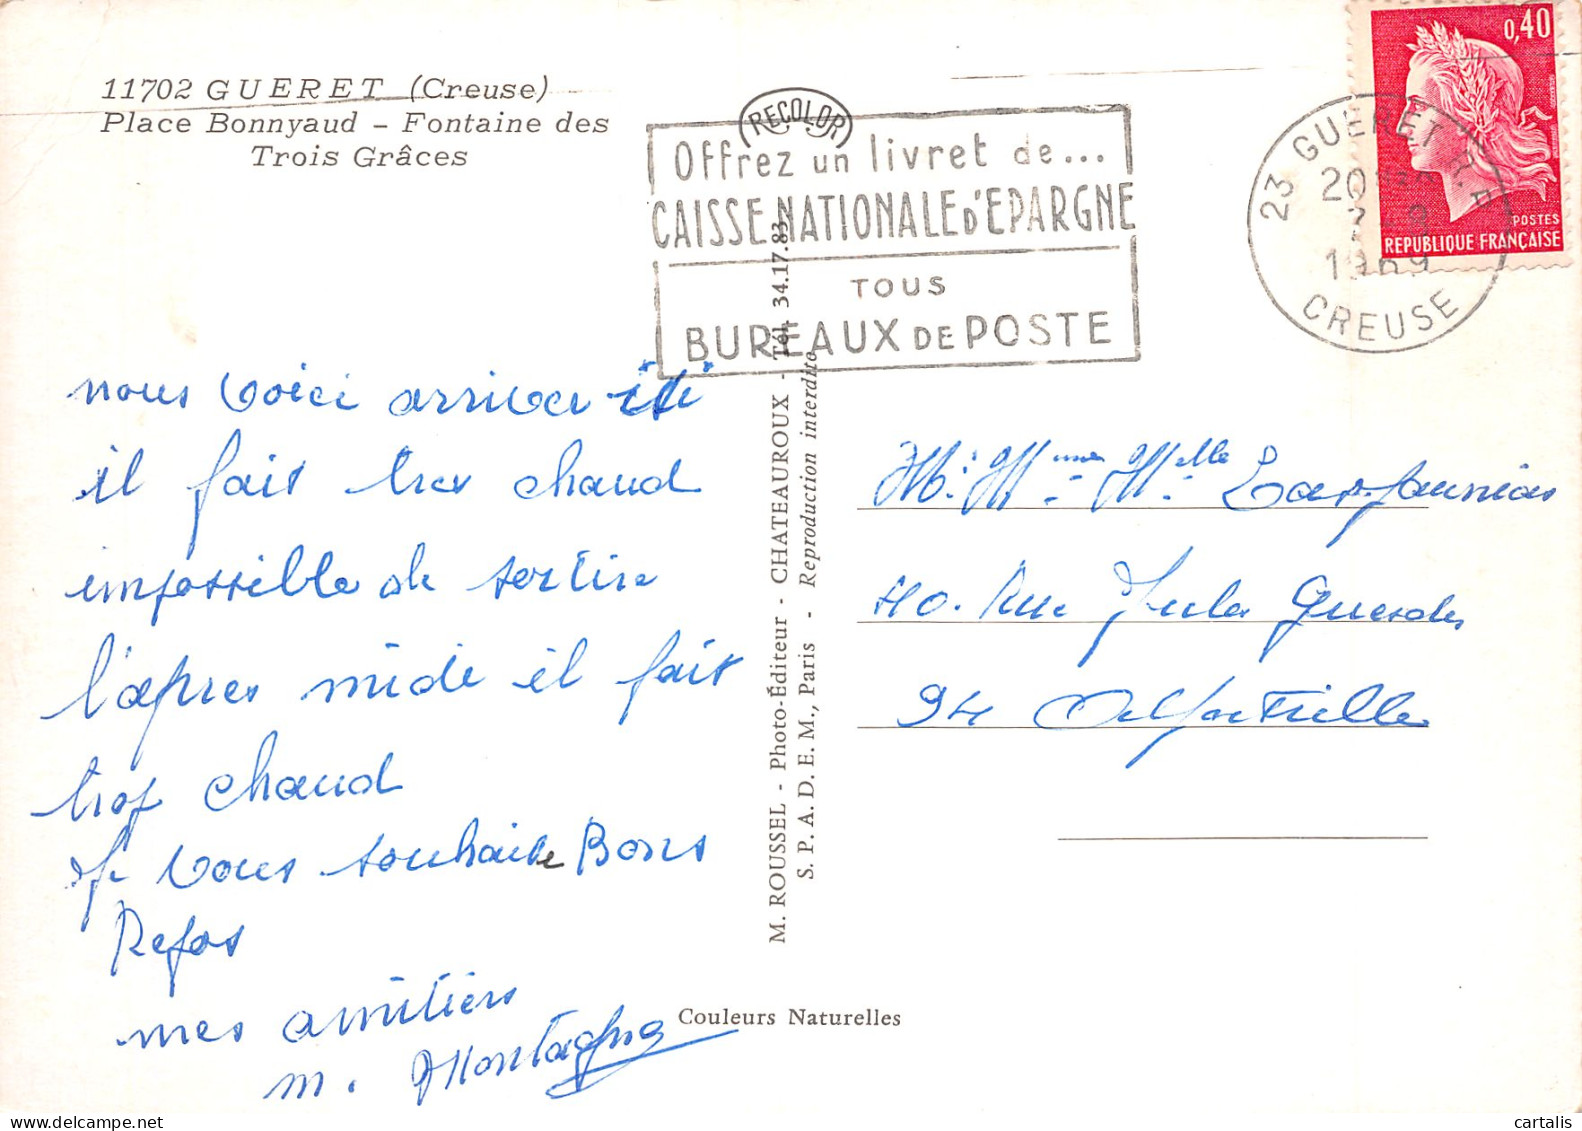 11702 GUERET (Creuse)
Place Bonnyaud - Fontaine des
Trois Grâces
RECOLOR
Offrez un livret de...
CAISSE NATIONALE D'EPARGNE
TOUS
BUREAUX DE POSTE
23 GUERET R.P.
20H
1969
CREUSE
0,40
POSTES
REPUBLIQUE FRANÇAISE
nous voici arriver ici
il fait tres chaud
impossible de sortire
l'apres midi il fait
trop chaud
Je vous souhaite Bons
Repos
mes amitiers
m. Montagne
M. ROUSSEL - Photo-Éditeur - CHATEAUROUX - Tél. 34.17.83
S. P. A. D. E. M., Paris - Reproduction interdite
M. Mme Melle
40. Rue Jules Guesde
94 Alfortville
Couleurs Naturelles
cartalis
© delcampe.net